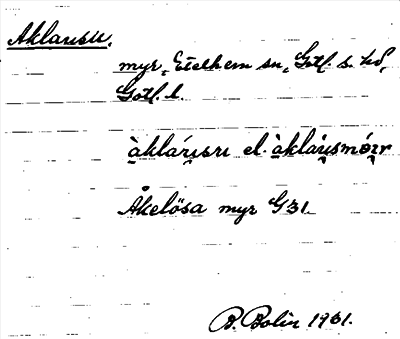 Aklausu.
myr, Etelhem sn, Gotl. s. hd,
Gotl. l.
àkláusu el. àkláusmó̦ᴣr
Åkelösa myr G31.
B. Bolin 1961.